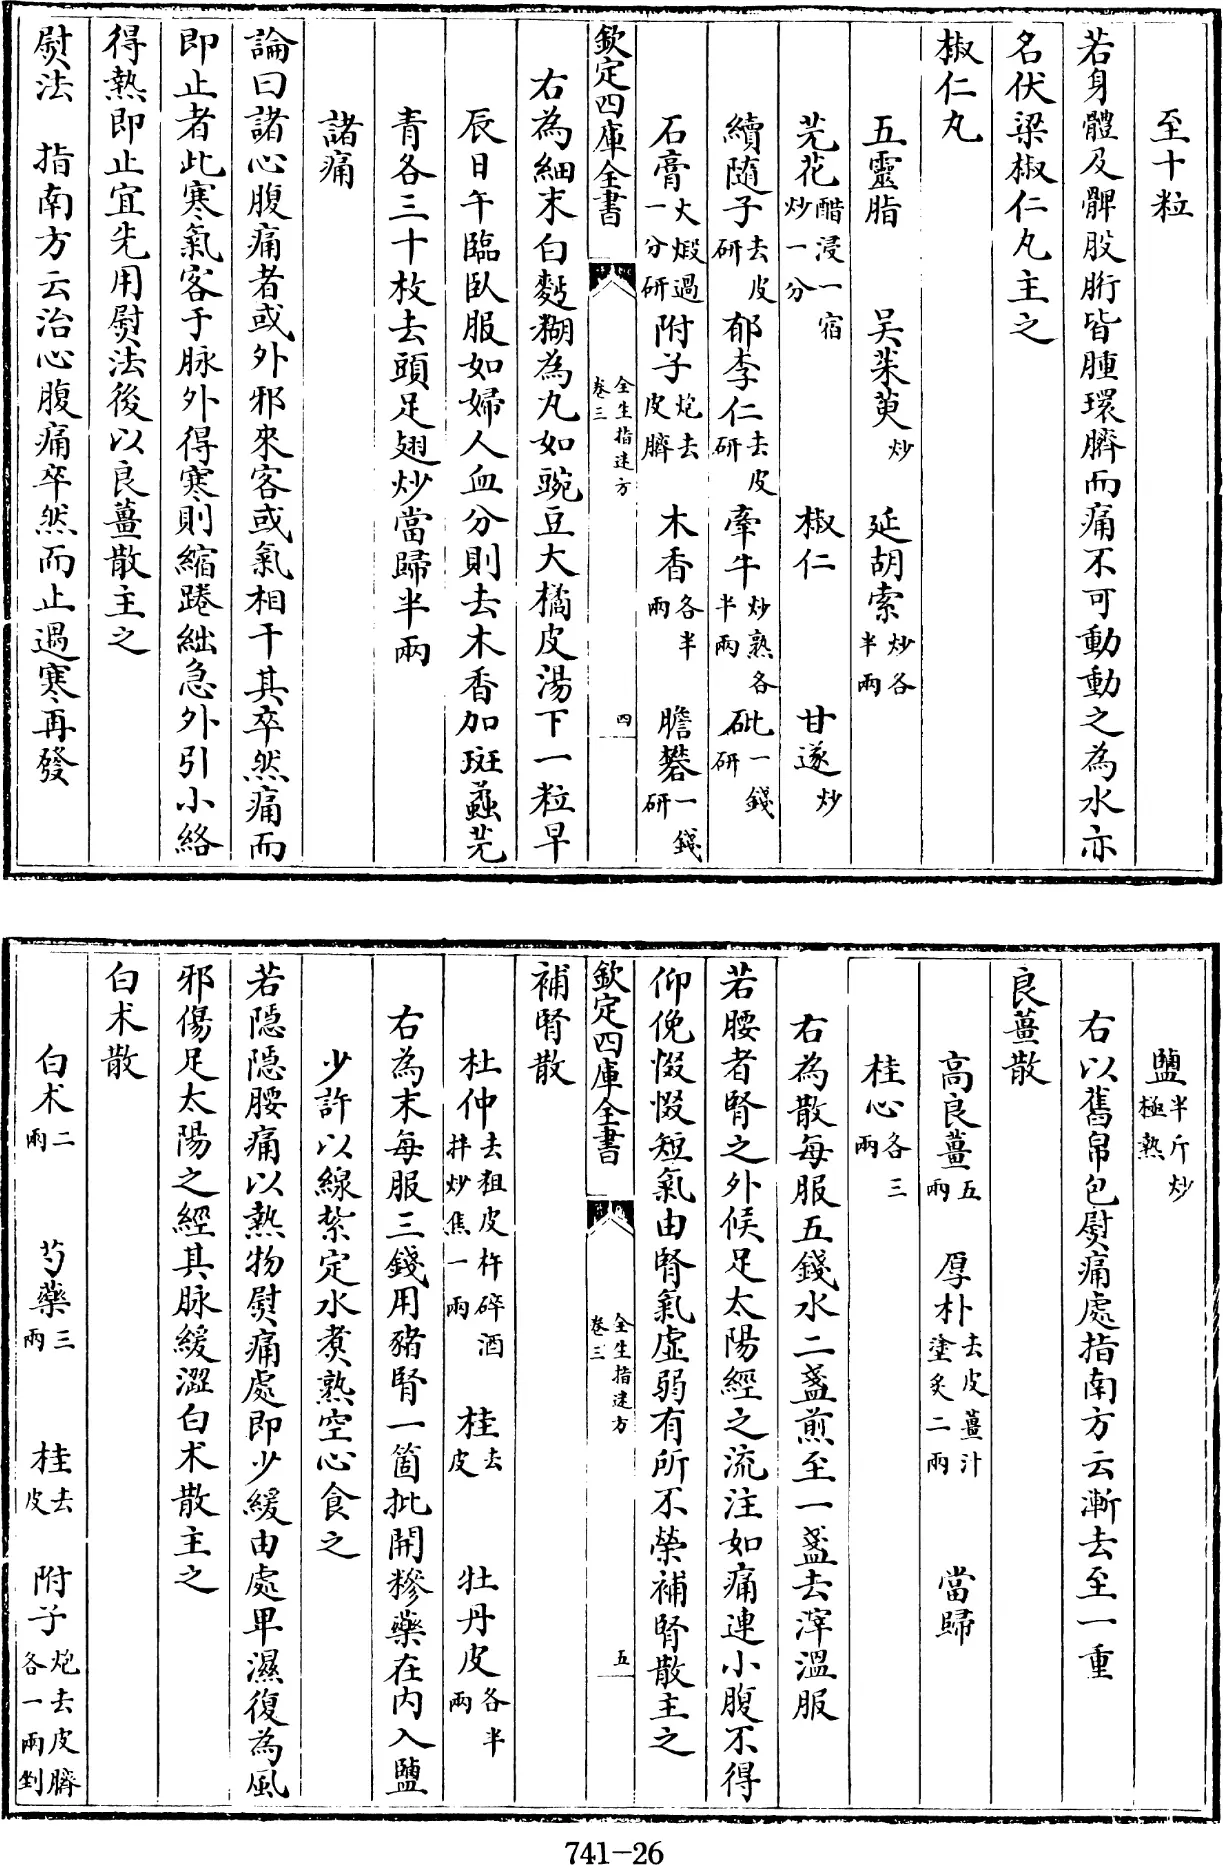 至十粒
若身體及髀股胻皆腫環臍而痛不可動動之為水亦
名伏梁椒仁丸主之
椒仁丸
五靈脂　吴茱萸炒　延胡索炒各半兩
芫花醋浸一宿炒一分　椒仁　甘遂炒
續隨子去皮研　郁李仁去皮研　牽牛炒熟各半兩　砒一錢研
石膏火煅過一分研　附子炮去皮臍　木香各半兩　膽礬一錢研
欽定四庫全書　全生指迷方卷三　四
右為細末白麪糊為丸如豌豆大橘皮湯下一粒早
辰日午臨臥服如婦人血分則去木香加斑蝥芫
青各三十枚去頭足翅炒當歸半兩
諸痛
論曰諸心腹痛者或外邪來客或氣相干其卒然痛而
即止者此寒氣客于脉外得寒則縮踡絀急外引小絡
得熱即止宜先用熨法後以良薑散主之
熨法　指南方云治心腹痛卒然而止遇寒再發
鹽半斤炒極熱
右以舊帛包熨痛處指南方云漸去至一重
良薑散
高良薑五兩　厚朴去皮薑汁塗炙二兩　當歸
桂心各三兩
右為散每服五錢水二盞煎至一盞去滓温服
若腰者腎之外候足太陽經之流注如痛連小腹不得
仰俛惙惙短氣由腎氣虛弱有所不榮補腎散主之
欽定四庫全書　全生指迷方卷三　五
補腎散
杜仲去粗皮杵碎酒拌炒焦一兩　桂去皮　牡丹皮各半兩
右為末每服三錢用豬腎一箇批開糝藥在内入鹽
少許以線紮定水煮熟空心食之
若隠隠腰痛以熱物熨痛處即少緩由處卑濕復為風
邪傷足太陽之經其脉緩澀白术散主之
白术散
白术二兩　芍藥三兩　桂去皮　附子炮去皮臍各一兩剉
741-26